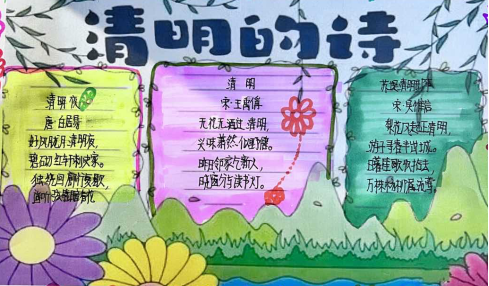 清明的诗
清明夜
唐·白居易
好风胧月清明夜,
碧砌红轩刺史家。
独绕回廊行复歇,
清明
宋·王禹偁
无花无酒过清明,
兴味萧然似野僧。
昨日邻家乞新火,
晓窗分与读书灯。
苏堤清明即事
宋·吴惟信
梨花风起正清明,
游子寻春半出城。
日暮笙歌收拾去,
万株杨柳属流莺。